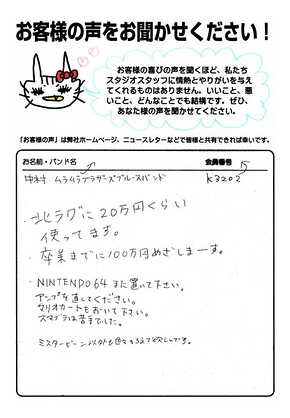 お客様の声をお聞かせください！
お客様の喜びの声を聞くほど、私たち
スタジオスタッフに情熱とやりがいを与え
てくれるものはありません。いいこと、悪
いこと、どんなことでも結構です。ぜひ、
あなた様の声をお聞かせください。
「お客様の声」は弊社ホームページ、ニュースレターなどで皆様と共有できれば幸いです。
お名前・バンド名 会員番号
中村 ムラムラブラザーズブルースバンド K3202
・北ラグに20万円くらい
使ってます。
・卒業までに100万円めざしまーす。
・NINTENDO64また置いて下さい。
アンプを直してください。
マリオカートもおいて下さい。
スマブラは苦手でした。
ミスタービーン以外も